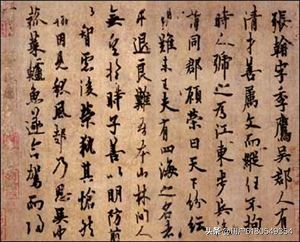 張翰字季鷹吳郡人有
清才善屬文而縱任不拘
時人號之為江東步兵後
謂同郡顧榮曰天下紛紜
禍難未已夫有四海之名者
求退良難吾本山林間人
無望於時子善以明防前
以智慮後榮執其愴然
翰因見秋風起乃思吳中
菰菜鱸魚遂命駕而歸
@用户6180549354